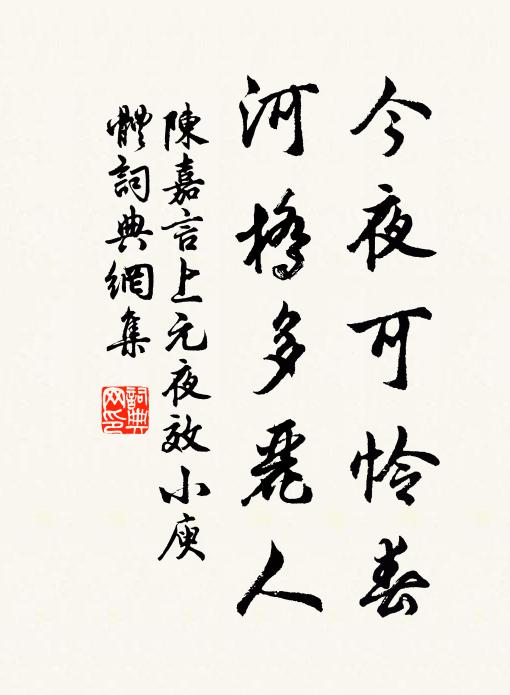 今夜可怜春
河橋多麗人
陳嘉言上元夜效小庾
體詞典網集
詞典
网印